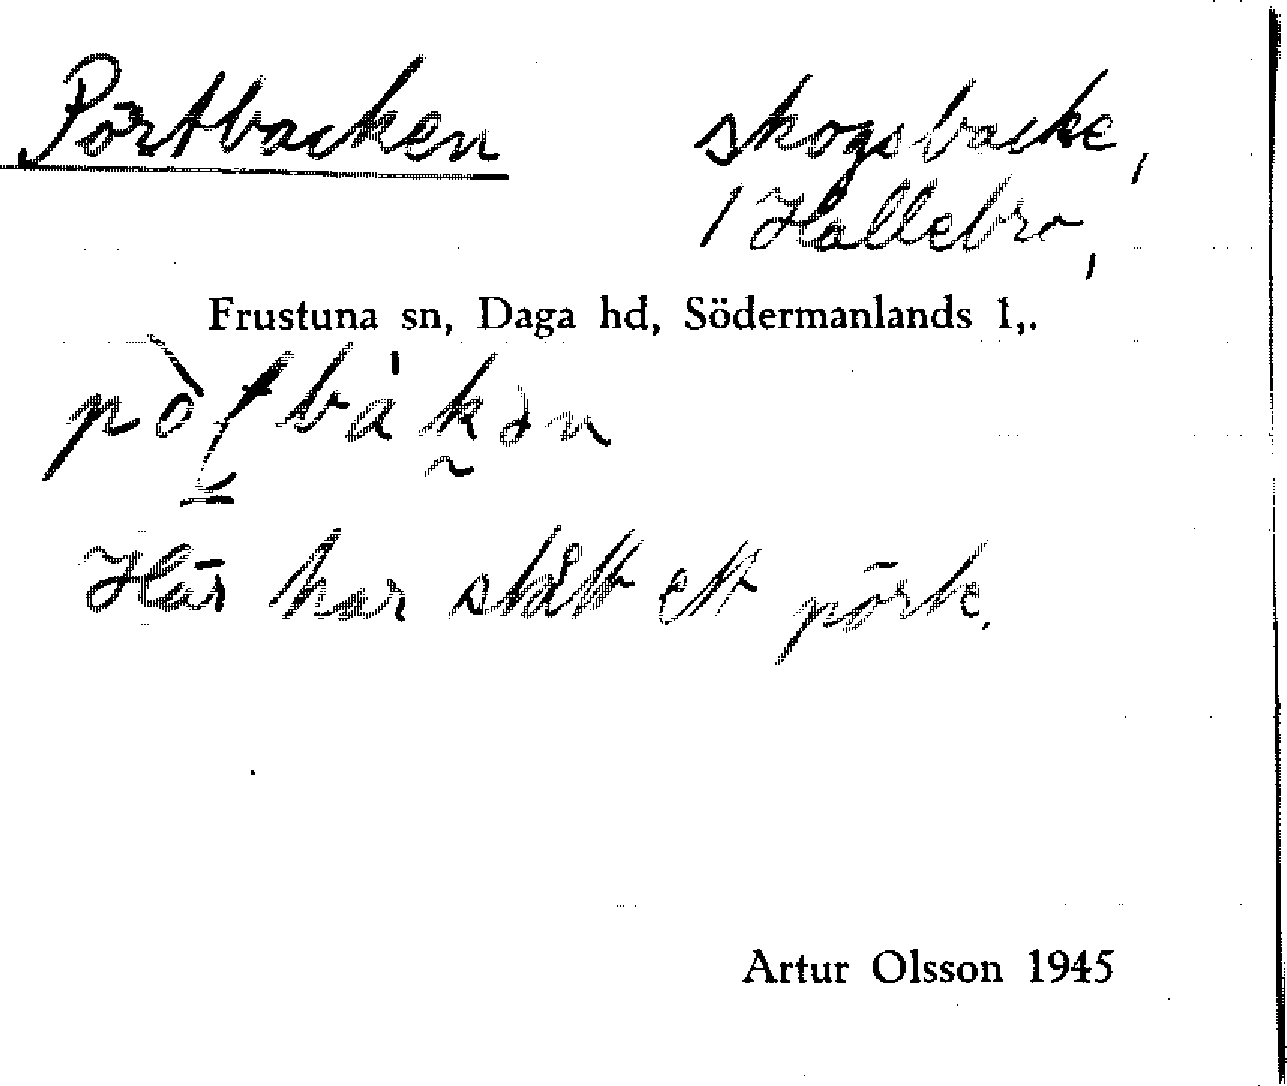 Pörtbacken skogsbacke,
/ Hallebro,
Frustuna sn, Daga hd, Södermanlands l,.
Här har stått ett pörte.
Artur Olsson 1945